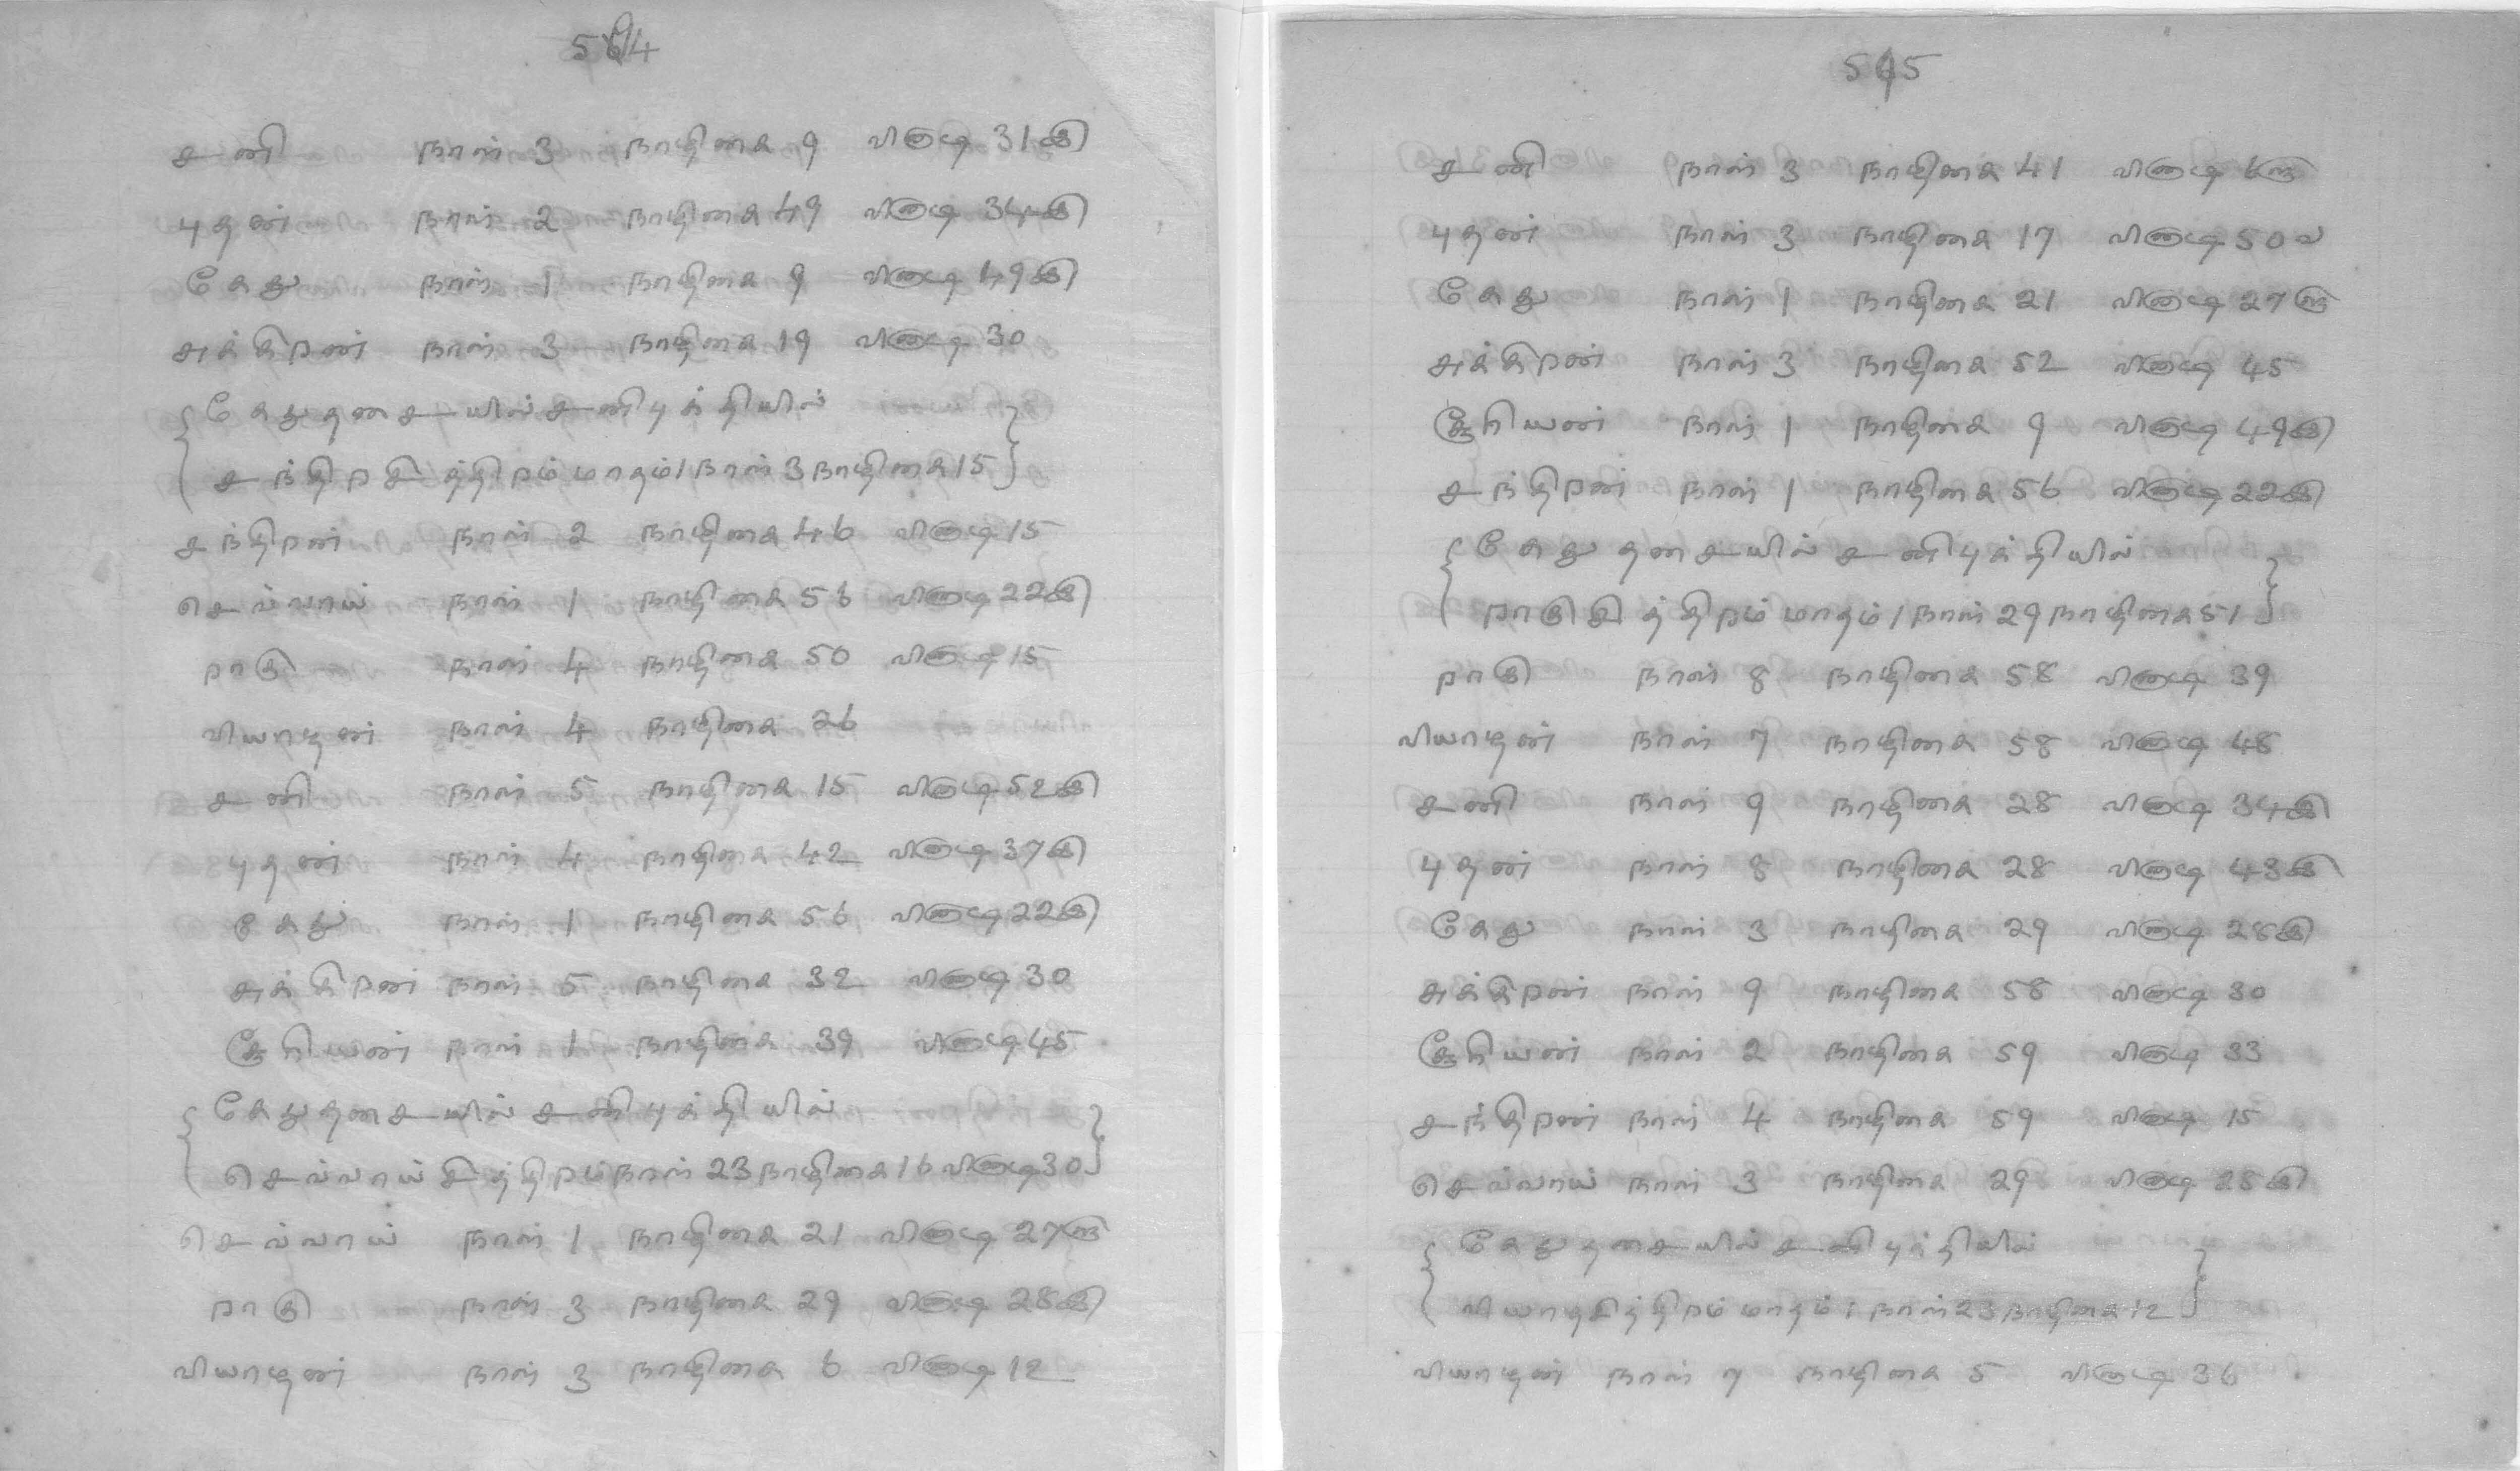 சனி நாள் 3 நாழிகை 9 விநாடி 31இ
புதன் நாள் 2 நாழிகை 49 விநாடி 34இ
கேது நாள் 1 நாழிகை 9 விநாடி 49இ
சுக்கிறன் நாள் 3 நாழிகை 19 விநாடி 30
கேதுதசையில் சனிபுக்தியில்
சந்திறசித்திறம் மாதம் 1 நாள் 3 நாழிகை 15
சந்திறன் நாள் 2 நாழிகை 46 விநாடி 15
செவ்வாய் நாள் 1 நாழிகை 56 விநாடி 22இ
றாகு நாள் 4 நாழிகை 50 விநாடி 15
வியாழன் நாள் 4 நாழிகை 26
சனி நாள் 5 நாழிகை 15 விநாடி 52இ
புதன் நாள் 4 நாழிகை 42 விநாடி 37இ
கேது நாள் 1 நாழிகை 56 விநாடி 22இ
சுக்கிறன் நாள் 5 நாழிகை 32 விநாடி 30
சூரியன் நாள் 1 நாழிகை 39 விநாடி 45
கேதுதசையில் சனிபுக்தியில்
செவ்வாய் சித்திறம் நாள் 23 நாழிகை 16 விநாடி 30
செவ்வாய் நாள் 1 நாழிகை 21 விநாடி 27
றாகு நாள் 3 நாழிகை 29 விநாடி 28இ
வியாழன் நாள் 3 நாழிகை 6 விநாடி 12
சனி நாள் 3 நாழிகை 41 விநாடி 6
புதன் நாள் 3 நாழிகை 17 விநாடி 50வ
கேது நாள் 1 நாழிகை 21 விநாடி 27
சுக்கிறன் நாள் 3 நாழிகை 52 விநாடி 45
சூரியன் நாள் 1 நாழிகை 9 விநாடி 49இ
சந்திறன் நாள் 1 நாழிகை 56 விநாடி 22இ
கேதுதசையில் சனிபுக்தியில்
றாகுசித்திறம் மாதம் 1 நாள் 29 நாழிகை 51
றாகு நாள் 8 நாழிகை 58 விநாடி 39
வியாழன் நாள் 7 நாழிகை 58 விநாடி 48
சனி நாள் 9 நாழிகை 28 விநாடி 34இ
புதன் நாள் 8 நாழிகை 28 விநாடி 43இ
கேது நாள் 3 நாழிகை 29 விநாடி 28இ
சுக்கிறன் நாள் 9 நாழிகை 58 விநாடி 30
சூரியன் நாள் 2 நாழிகை 59 விநாடி 33
சந்திறன் நாள் 4 நாழிகை 59 விநாடி 15
செவ்வாய் நாள் 3 நாழிகை 29 விநாடி 28இ
கேதுதசையில் சனிபுக்தியில்
வியாழசித்திறம் மாதம் 1 நாள் 23 நாழிகை 12
வியாழன் நாள் 7 நாழிகை 5 விநாடி 36